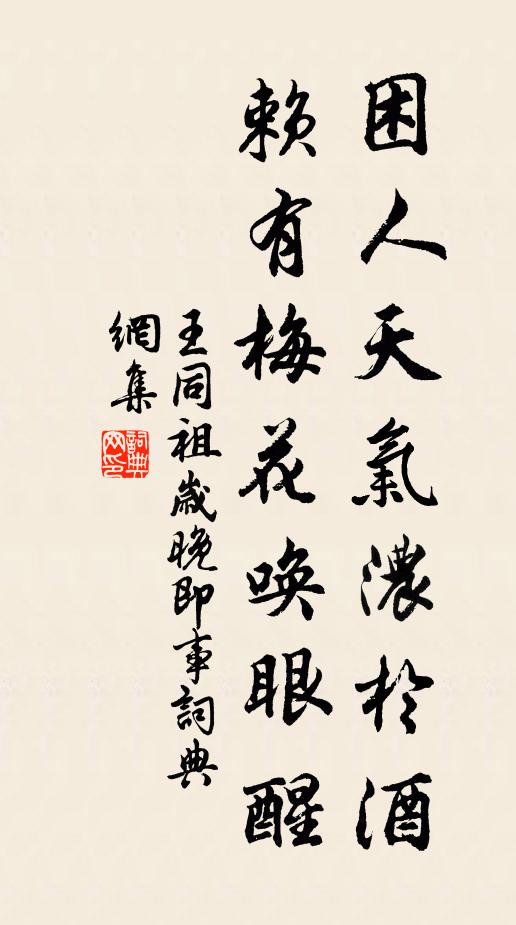 困人天氣濃於酒
賴有梅花喚眼醒
王同祖歲晚即事詞典
網集
詞典網印